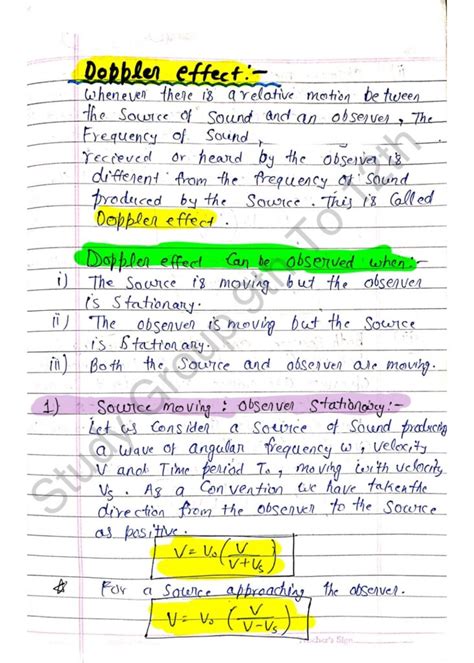 Doppler effect:-
Whenever there is a relative motion between
the Source of Sound and an observer, The
Frequency of Sound,
recieved or heard by the observer is
different from the frequency of sound
produced by the Source. This is Called
Doppler effect.
Doppler effect Can be observed when:-
i) The Source is moving but the observer
is Stationary.
ii) The observer is moving but the Source
is Stationary.
iii) Both the Source and observer are moving.
1) Source moving : observer Stationary:-
Let us Consider a Source of Sound producing
a wave of angular frequency ω, velocity
V and Time period T₀, moving with velocity
Vs. As a Convention we have taken the
direction from the observer to the Source
as positive.
V = V₀ (V / V+Vs)
☆ For a Source approaching the observer.
V = V₀ (V / V-Vs)
Study Group 9th To 12th